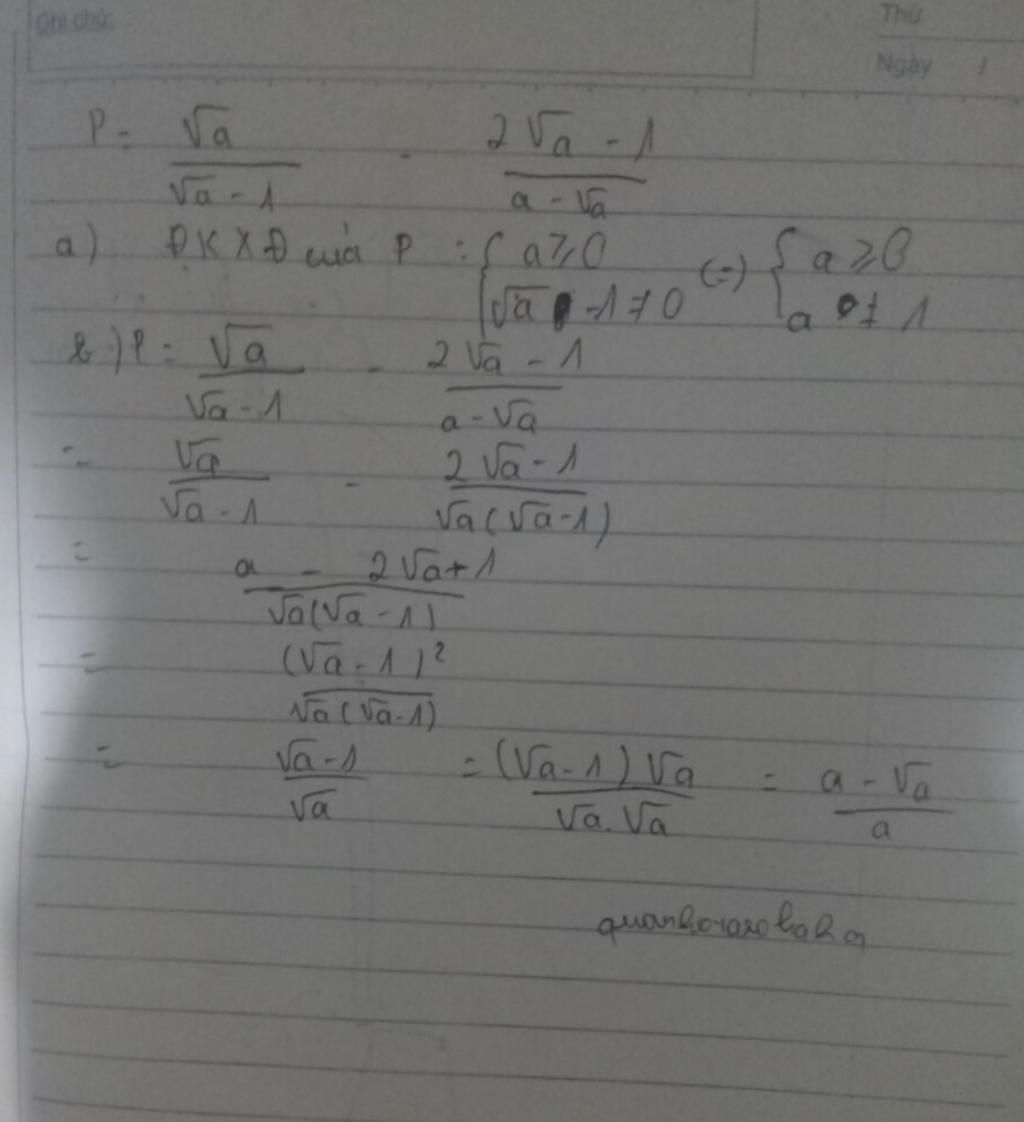 Ghi chú:
Thứ
Ngày /
P = √a / (√a - 1) - (2√a - 1) / (a - √a)
a) ĐKXĐ của P : { a ≥ 0 ; √a - 1 ≠ 0 (=) { a ≥ 0 ; a ≠ 1
b) P = √a / (√a - 1) - (2√a - 1) / (a - √a)
= √a / (√a - 1) - (2√a - 1) / (√a(√a - 1))
= (a - 2√a + 1) / (√a(√a - 1))
= (√a - 1)² / (√a(√a - 1))
= (√a - 1) / √a = (√a - 1)√a / (√a.√a) = (a - √a) / a